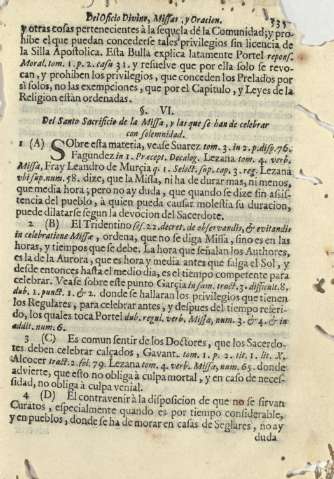 Del Oficio Divino, Missa, y Oracion. 335
y otras cosas pertenecientes à la sequela dè la Comunidad; y pro-
hibe el que puedan concederse tales privilegios sin licencia de
la Silla Apostolica. Esta Bulla explica latamente Portel respons.
Moral, tom. 1. p. 2. casu 31. y resuelve que por ella solo se revo-
can, y prohiben los privilegios, que conceden los Prelados por
si solos, no las exempciones, que por el Capitulo, y Leyes de la
Religion estàn ordenadas.
§. VI.
Del Santo Sacrificio de la Missa, y las que se han de celebrar
con solemnidad.
1 (A) Sobre esta materia, vease Suarez. tom. 3. in 2. p. disp. 76.
Fagundez in 1. Præcept. Decalog. Lezana tom. 4. verb.
Missa, Fray Leandro de Murcia q. 1. Select. sup. cap. 3. reg. Lezana
ubi sup. num. 48. dize, que la Missa, ni ha de durar mas, ni menos,
que media hora; pero no ay duda, que quando se dize sin assis-
tencia del pueblo, à quien pueda causar molestia su duracion,
puede dilatarse segun la devocion del Sacerdote.
2 (B) El Tridentino ses. 22. decret. de observandis, & evitandis
in celebratione Missæ, ordena, que no se diga Missa, sino es en las
horas, y tiempos que se debe. La hora que señalan los Authores,
es la de la Aurora, que es hora y media antes que salga el Sol, y
desde entonces hasta el medio dia, es el tiempo competente para
celebrar. Vease sobre este punto Garcia in sum. tract. 3. difficult. 8.
dub. 1. punct. 1. & 2. donde se hallaran los privilegios que tienen
los Regulares, para celebrar antes, y despues del tiempo referi-
do, los quales toca Portel dub. regul. verb. Missa, num. 3. & 4. & in
addit. num. 6.
3 (C) Es comun sentir de los Doctores, que los Sacerdo-
tes deben celebrar calçados, Gavant. tom. 1. p. 2. tit. 1. lit. X.
Alcocer tract. 2. fol. 79. Lezana tom. 4. verb. Missa, num. 65. donde
advierte, que esto no obliga à culpa mortal, y en caso de neces-
sidad, no obliga à culpa venial.
4 (D) El contravenir à la disposicion de que no se sirvan
Curatos, especialmente quando es por tiempo considerable,
y en pueblos, donde se ha de morar en casas de Seglares, no ay
duda